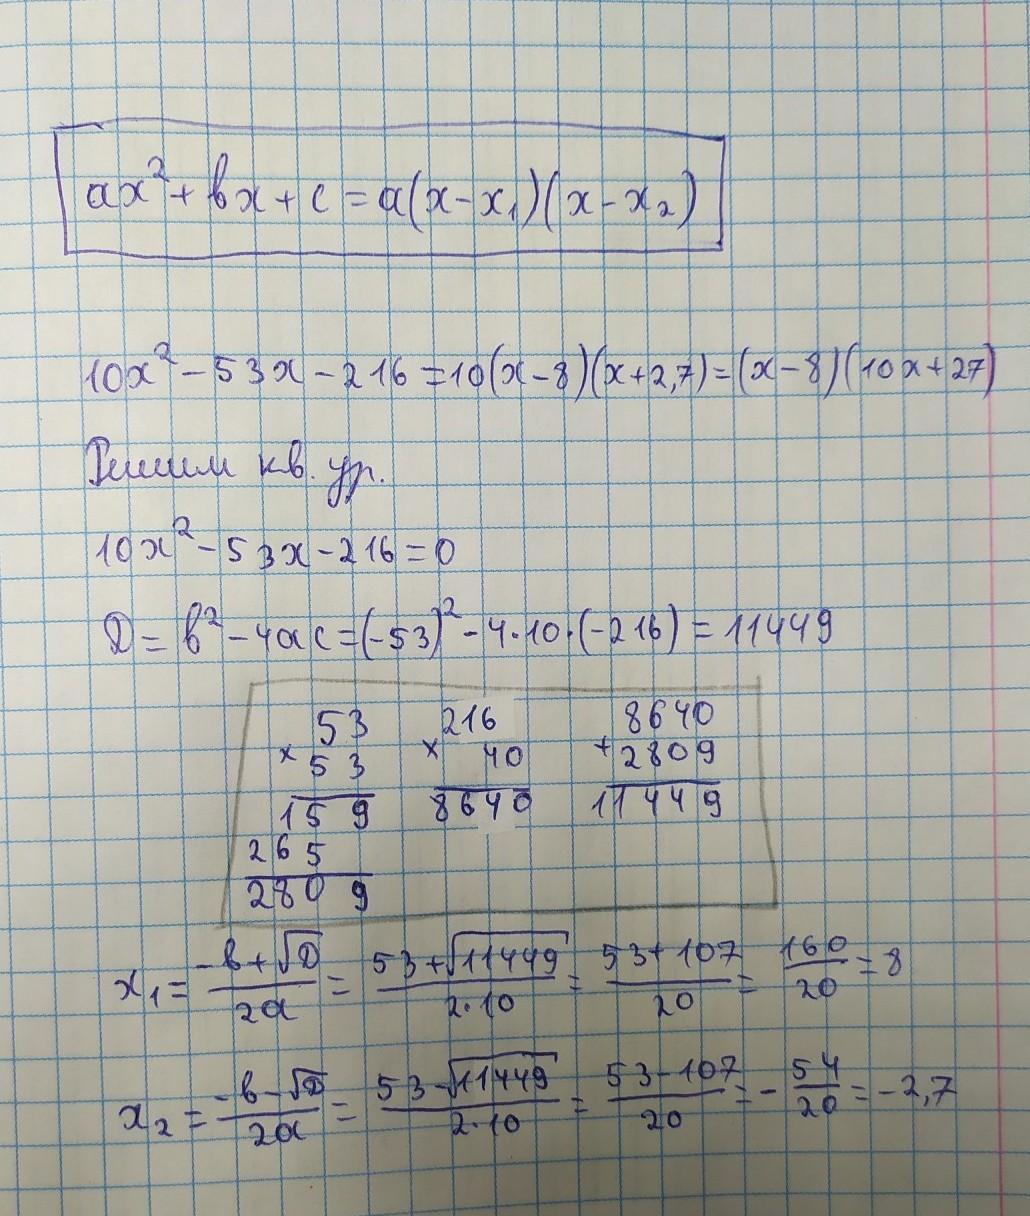 ax² + bx + c = a(x - x₁)(x - x₂)
10x² - 53x - 216 = 10(x - 8)(x + 2,7) = (x - 8)(10x + 27)
Решим кв. ур.
10x² - 53x - 216 = 0
D = b² - 4ac = (-53)² - 4·10·(-216) = 11449
53 216 8640
× 53 × 40 + 2809
159 8640 11449
265
2809
x₁ = (-b + √D)/(2a) = (53 + √11449)/(2·10) = (53 + 107)/20 = 160/20 = 8
x₂ = (-b - √D)/(2a) = (53 - √11449)/(2·10) = (53 - 107)/20 = - 54/20 = -2,7